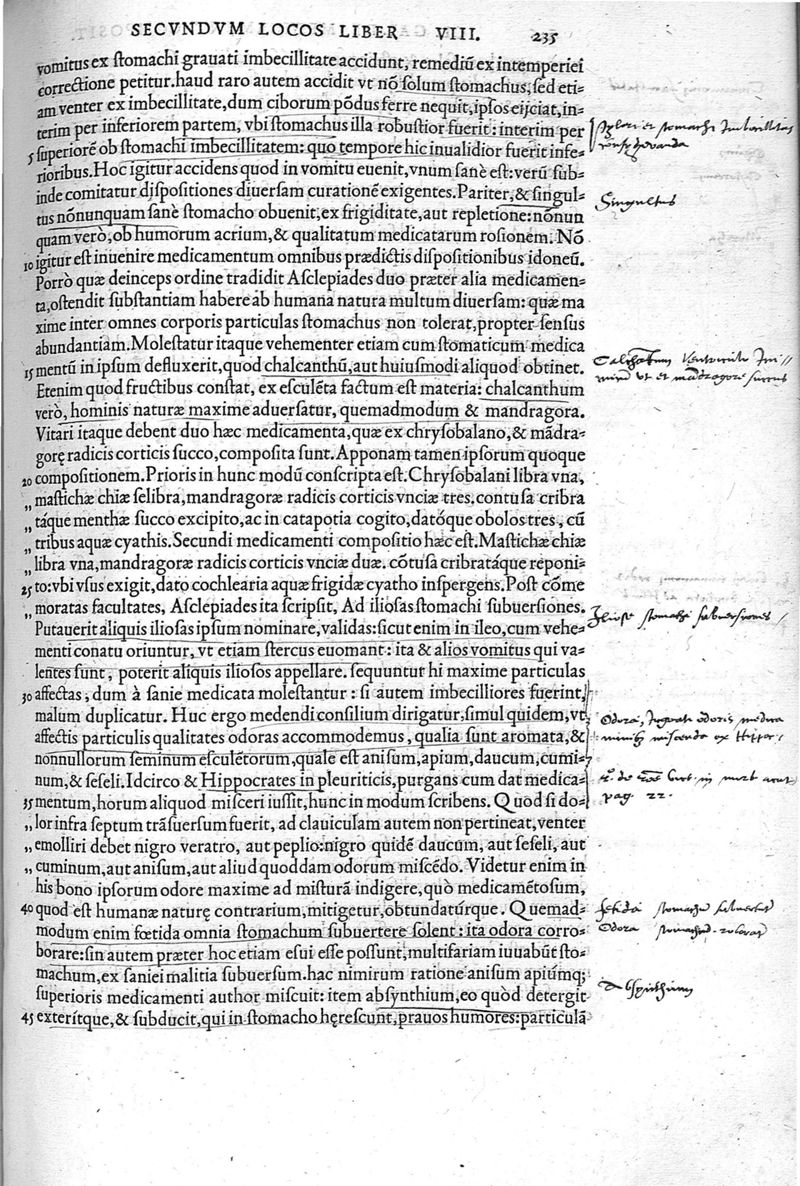 SECVNDVM LOCOS LIBER VIII. 235
vomitus ex stomachi grauati imbecillitate accidunt, remediũ ex intemperiei
correctione petitur. haud raro autem accidit vt nõ solum stomachus, sed eti-
am venter ex imbecillitate, dum ciborum põdus ferre nequit, ipsos eijciat, in-
terim per inferiorem partem, vbi stomachus illa robustior fuerit: interim per
5 superiorẽ ob stomachi imbecillitatem: quo tempore hic inualidior fuerit infe-
rioribus. Hoc igitur accidens quod in vomitu euenit, vnum sanè est: verũ sub-
inde comitatur dispositiones diuersam curationẽ exigentes. Pariter, & singul-
Singultus
tus nõnunquam sanè stomacho obuenit, ex frigiditate, aut repletione: nõnun
quam verò, ob humorum acrium, & qualitatum medicatarum rosionem. Nõ
10 igitur est inuenire medicamentum omnibus prædictis dispositionibus idoneũ.
Porrò quæ deinceps ordine tradidit Asclepiades duo præter alia medicamen-
ta, ostendit substantiam habere ab humana natura multum diuersam: quæ ma
xime inter omnes corporis particulas stomachus non tolerat, propter sensus
abundantiam. Molestatur itaque vehementer etiam cum stomaticum medica
15 mentũ in ipsum defluxerit, quod chalcanthũ, aut huiusmodi aliquod obtinet.
Etenim quod fructibus constat, ex esculẽta factum est materia: chalcanthum
verò, hominis naturæ maxime aduersatur, quemadmodum & mandragora.
Vitari itaque debent duo hæc medicamenta, quæ ex chrysobalano, & mãdra-
gorę radicis corticis succo, composita sunt. Apponam tamen ipsorum quoque
20 compositionem. Prioris in hunc modũ conscripta est. Chrysobalani libra vna,
„ mastichæ chiæ selibra, mandragoræ radicis corticis vnciæ tres. contusa cribra
„ táque menthæ succo excipito, ac in catapotia cogito, datóque obolos tres, cũ
„ tribus aquæ cyathis. Secundi medicamenti compositio hæc est. Mastichæ chiæ
„ libra vna, mandragoræ radicis corticis vnciæ duæ. cõtusa cribratáque reponi-
25 to: vbi vsus exigit, dato cochlearia aquæ frigidæ cyatho inspergens. Post cõme
„ moratas facultates, Asclepiades ita scripsit, Ad iliosas stomachi subuersiones.
Iliosæ stomachi subuersiones
Putauerit aliquis iliosas ipsum nominare, validas: sicut enim in ileo, cum vehe-
menti conatu oriuntur, vt etiam stercus euomant: ita & alios vomitus qui va-
lentes sunt, poterit aliquis iliosos appellare. sequuntur hi maxime particulas
30 affectas, dum à sanie medicata molestantur: si autem imbecilliores fuerint,
malum duplicatur. Huc ergo medendi consilium dirigatur, simul quidem, vt
affectis particulis qualitates odoras accommodemus, qualia sunt aromata, &
nonnullorum seminum esculẽtorum, quale est anisum, apium, daucum, cumi-
num, & seseli. Idcirco & Hippocrates in pleuriticis, purgans cum dat medica-
pag. 22.
35 mentum, horum aliquod misceri iussit, hunc in modum scribens. Quod si do-
„ lor infra septum trãsuersum fuerit, ad clauiculam autem non pertineat, venter
„ emolliri debet nigro veratro, aut peplio: nigro quidẽ daucum, aut seseli, aut
„ cuminum, aut anisum, aut aliud quoddam odorum miscẽdo. Videtur enim in
his bono ipsorum odore maxime ad misturã indigere, quò medicamẽtosum,
40 quod est humanæ naturę contrarium, mitigetur, obtundatúrque. Quemad-
modum enim fœtida omnia stomachum subuertere solent: ita odora corro-
borare: sin autem præter hoc etiam esui esse possunt, multifariam iuuabũt sto-
machum, ex saniei malitia subuersum. hac nimirum ratione anisum apiúmq;
superioris medicamenti author miscuit: item absynthium, eo quòd detergit
45 exterítque, & subducit, qui in stomacho hęrescunt, prauos humores: particulã